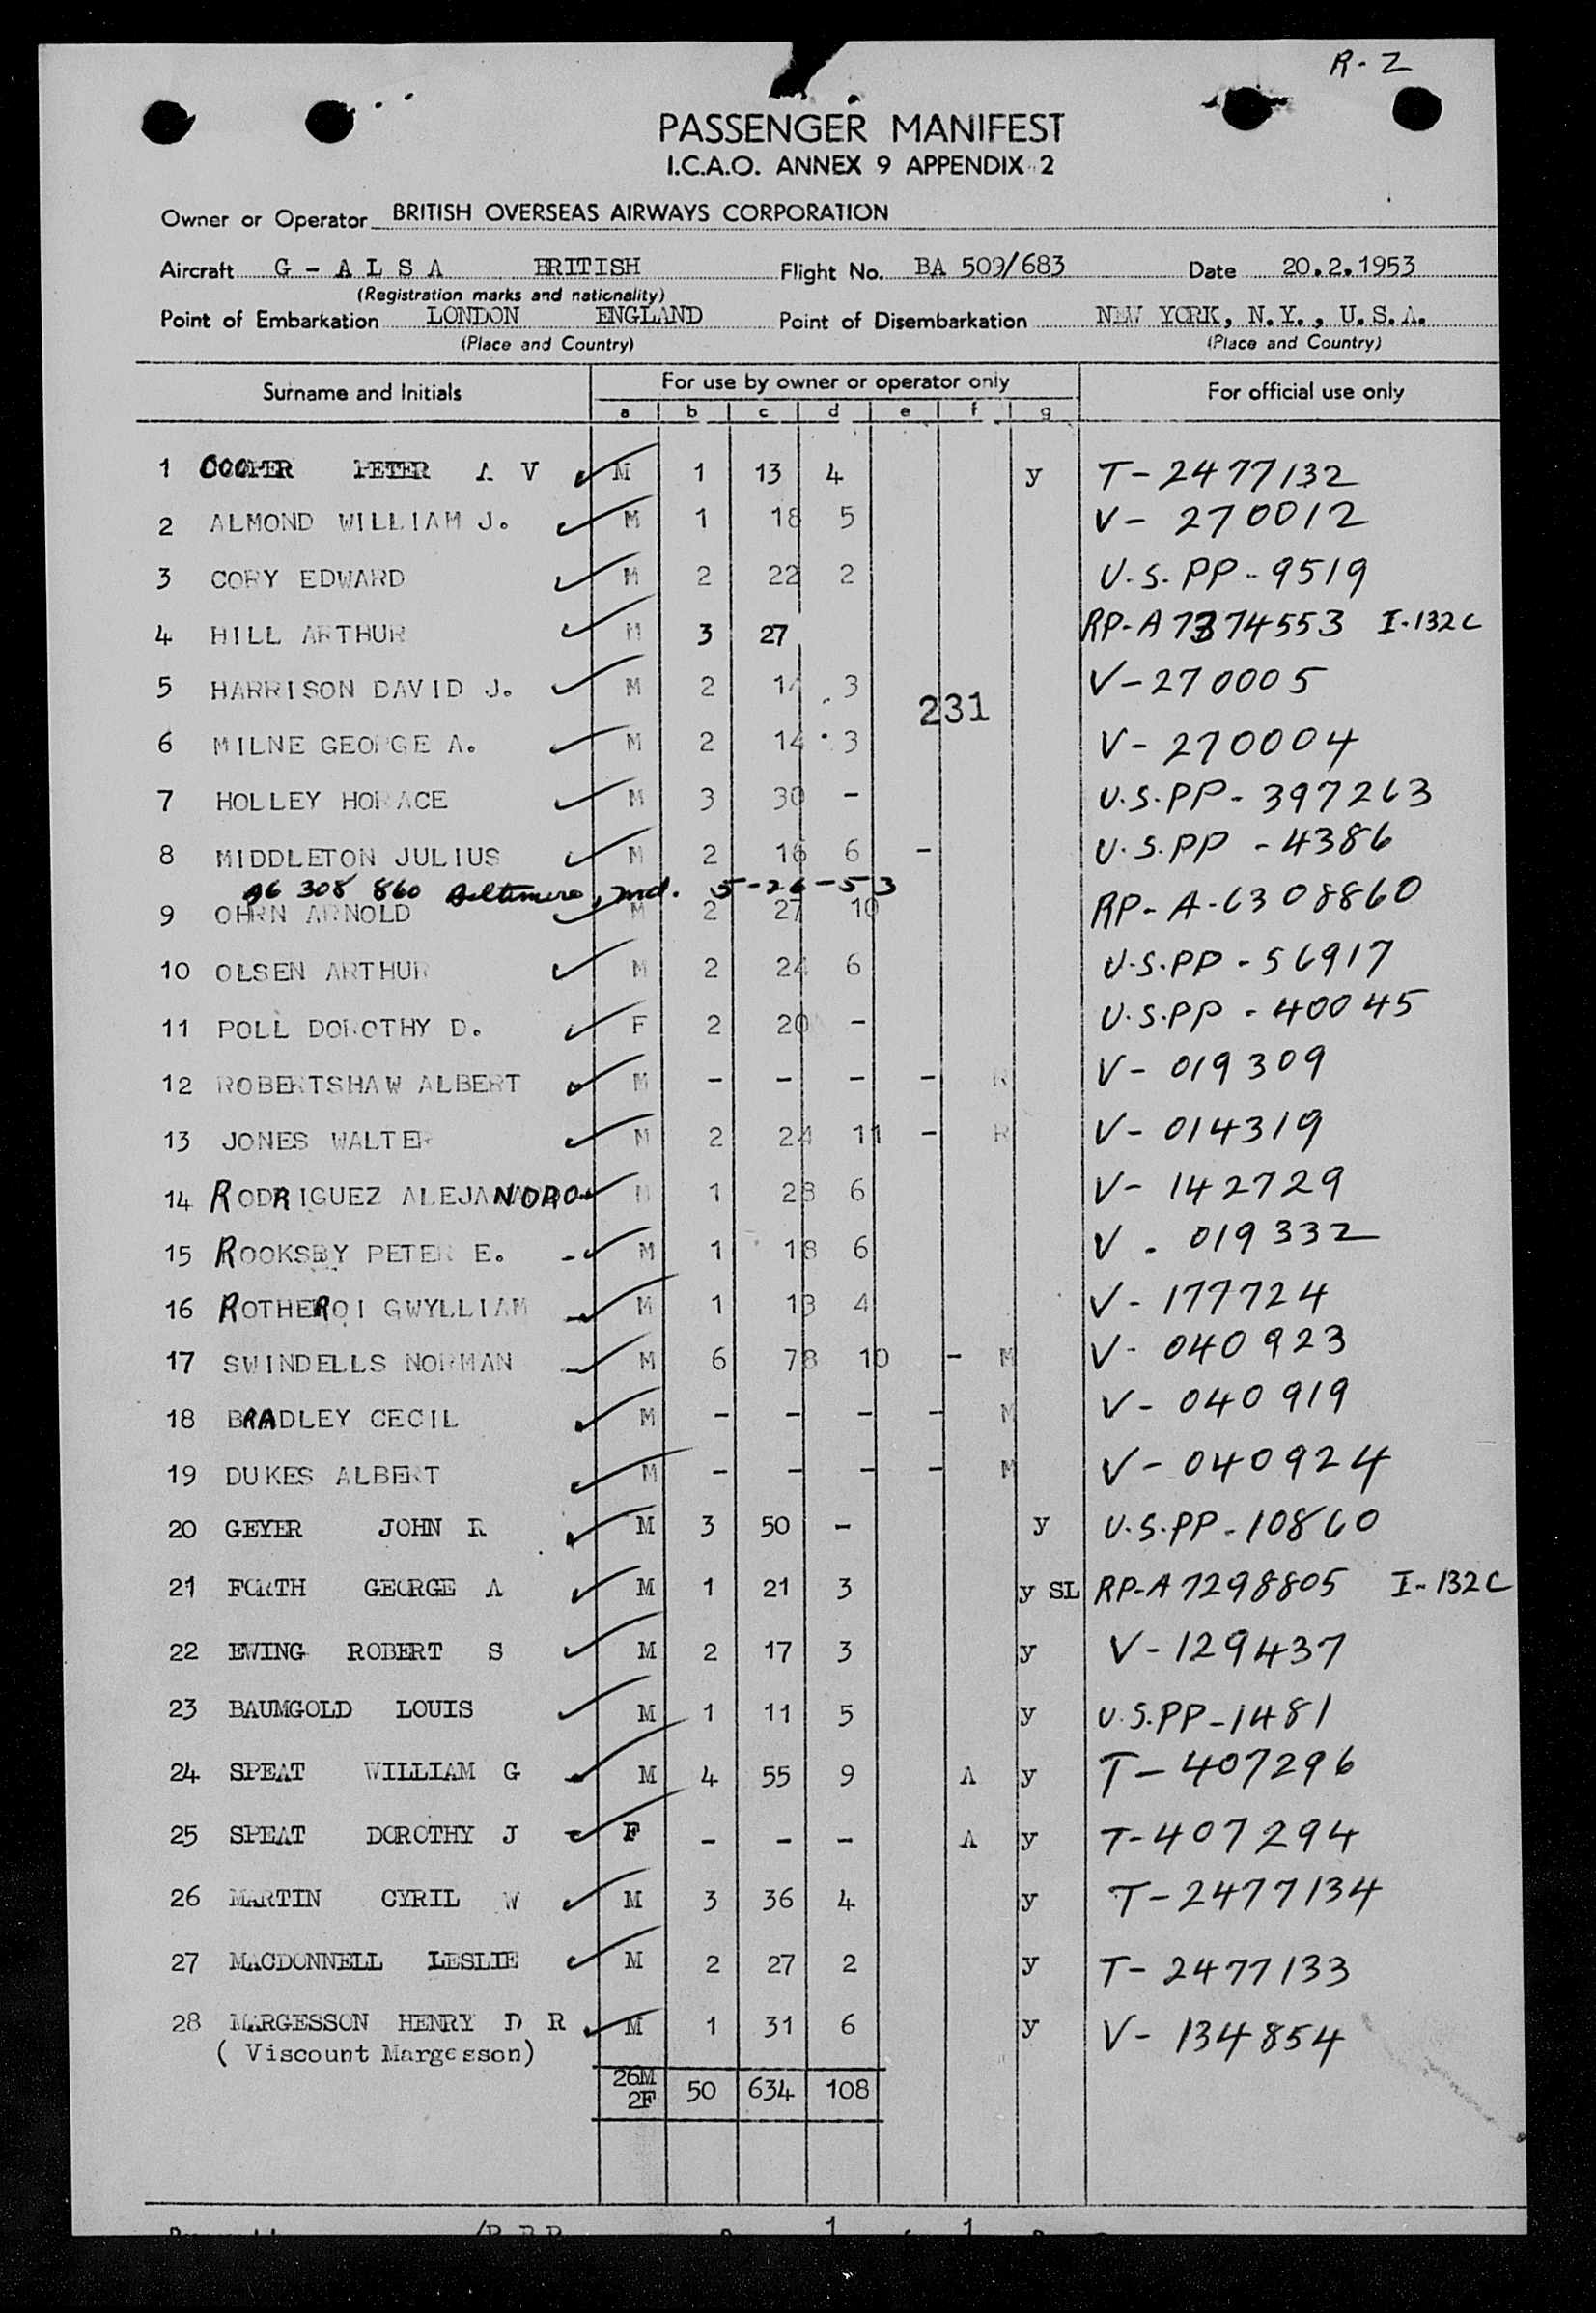 R-2
PASSENGER MANIFEST
I.C.A.O. ANNEX 9 APPENDIX 2
Owner or Operator BRITISH OVERSEAS AIRWAYS CORPORATION
Aircraft G - A L S A BRITISH Flight No. BA 509/683 Date 20.2.1953
(Registration marks and nationality)
Point of Embarkation LONDON ENGLAND Point of Disembarkation NEW YORK, N.Y., U.S.A.
(Place and Country) (Place and Country)
Surname and Initials For use by owner or operator only For official use only
a b c d e f g
1 COOPER PETER A V M 1 13 4 y T-2477132
2 ALMOND WILLIAM J. M 1 18 5 V-270012
3 CORY EDWARD M 2 22 2 U.S.PP-9519
4 HILL ARTHUR M 3 27 RP-A7374553 I-132C
5 HARRISON DAVID J. M 2 14 3 V-270005
231
6 MILNE GEORGE A. M 2 14 3 V-270004
7 HOLLEY HORACE M 3 30 - U.S.PP-397263
8 MIDDLETON JULIUS M 2 16 6 - U.S.PP-4386
A6 308 860 Baltimore, Md. 5-26-53
9 OHRN ARNOLD M 2 27 10 RP-A-6308860
10 OLSEN ARTHUR M 2 24 6 U.S.PP-56917
11 POLL DOROTHY D. F 2 20 - U.S.PP-40045
12 ROBERTSHAW ALBERT M - - - - R V-019309
13 JONES WALTER M 2 24 11 - R V-014319
14 RODRIGUEZ ALEJANDRO M 1 28 6 V-142729
15 ROOKSBY PETER E. - M 1 18 6 V-019332
16 ROTHEROI GWYLLIAM M 1 13 4 V-177724
17 SWINDELLS NORMAN M 6 78 10 - M V-040923
18 BRADLEY CECIL M - - - - M V-040919
19 DUKES ALBERT M - - - - M V-040924
20 GEYER JOHN R M 3 50 - y U.S.PP-10860
21 FORTH GEORGE A M 1 21 3 y SL RP-A7298805 I-132C
22 EWING ROBERT S M 2 17 3 y V-129437
23 BAUMGOLD LOUIS M 1 11 5 y U.S.PP-1481
24 SPEAT WILLIAM G M 4 55 9 A y T-407296
25 SPEAT DOROTHY J F - - - A y T-407294
26 MARTIN CYRIL W M 3 36 4 y T-2477134
27 MACDONNELL LESLIE M 2 27 2 y T-2477133
28 MARGESSON HENRY D R M 1 31 6 y V-134854
(Viscount Margesson)
26M
2F 50 634 108